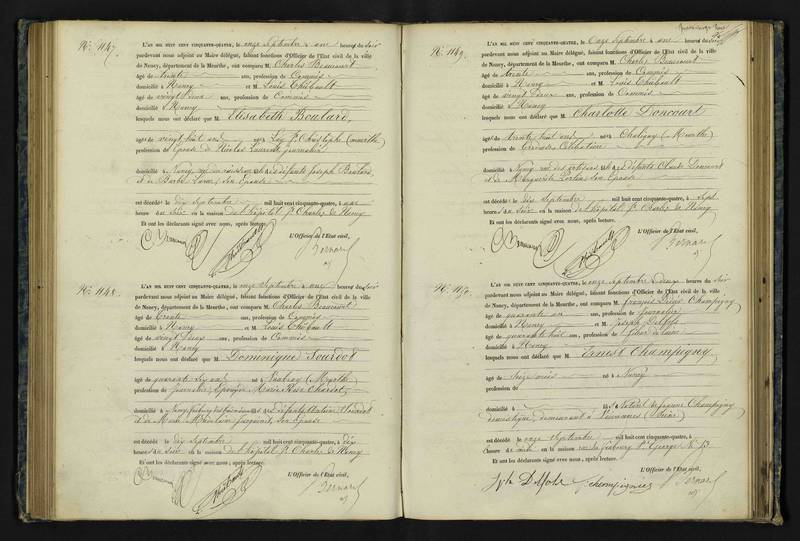 No. 1147.
L'AN MIL HUIT CENT CINQUANTE-QUATRE, le onze Septembre à une heure du Soir
pardevant nous adjoint au Maire délégué, faisant fonctions d'Officier de l'Etat civil de la ville
de Nancy, département de la Meurthe, ont comparu M. Charles Beaucourt
âgé de trente ans, profession de Commis
domicilié à Nancy et M. Louis Thibault
âgé de vingt deux ans, profession de Commis
domicilié à Nancy
lesquels nous ont déclaré que M. Elisabeth Boulard,
âgée de vingt huit ans née à St. Christophe
profession de Epouse de Nicolas Laurent journalier
domicilié à Nancy défunts Joseph Boulard
et de Barbe son Epouse
est décédé le dix Septembre mil huit cent cinquante-quatre, à une
heure au soir en la maison de l'hôpital St. Charles de Nancy
Et ont les déclarants signé avec nous, après lecture.
L'Officier de l'Etat civil,
Bernard
adj
No. 1148.
L'AN MIL HUIT CENT CINQUANTE-QUATRE, le onze Septembre à une heure du Soir
pardevant nous adjoint au Maire délégué, faisant fonctions d'Officier de l'Etat civil de la ville
de Nancy, département de la Meurthe, ont comparu M. Charles Beaucourt
âgé de trente ans, profession de Commis
domicilié à Nancy et M. Louis Thibault
âgé de vingt deux ans, profession de Commis
domicilié à Nancy
lesquels nous ont déclaré que M. Dominique Jourdot
âgé de quarante six ans né à (Meurthe)
profession de journalier, Epoux de Marie Rose
domicilié à Nancy, faubourg des défunts
et de Marie Madeleine son Epouse
est décédé le dix Septembre mil huit cent cinquante-quatre, à dix
heures au soir en la maison de l'hôpital St. Charles de Nancy
Et ont les déclarants signé avec nous, après lecture.
L'Officier de l'Etat civil,
Bernard
adj
No. 1149.
L'AN MIL HUIT CENT CINQUANTE-QUATRE, le Onze Septembre à une heure du Soir
pardevant nous adjoint au Maire délégué, faisant fonctions d'Officier de l'Etat civil de la ville
de Nancy, département de la Meurthe, ont comparu M. Charles Beaucourt
âgé de trente ans, profession de Commis
domicilié à Nancy et M. Louis Thibault
âgé de vingt deux ans, profession de Commis
domicilié à Nancy
lesquels nous ont déclaré que M. Charlotte Doncourt
âgée de trente huit ans née à Chaligny (Meurthe)
profession de Célibataire
domicilié à Nancy rue des artisans défunts Claude Doncourt
et de Marguerite son Epouse
est décédé le dix Septembre mil huit cent cinquante-quatre, à Sept
heures au Soir en la maison de l'hôpital St. Charles de Nancy
Et ont les déclarants signé avec nous, après lecture.
L'Officier de l'Etat civil,
Bernard
adj
No. 1150.
L'AN MIL HUIT CENT CINQUANTE-QUATRE, le onze Septembre à deux heures du Soir
pardevant nous adjoint au Maire délégué, faisant fonctions d'Officier de l'Etat civil de la ville
de Nancy, département de la Meurthe, ont comparu M. François Didier Champigny
âgé de quarante un ans, profession de journalier
domicilié à Nancy et M. Joseph Delfols
âgé de quarante huit ans, profession de fileur de laine
domicilié à Nancy
lesquels nous ont déclaré que M. Ernest Champigny
âgé de Seize mois né à Nancy
profession de
domicilié à fils Naturel de Jeanne Champigny
domestique, demeurant à Vincennes (Seine)
est décédé le onze Septembre mil huit cent cinquante-quatre, à
heure de midi en la maison rue du faubourg St. Georges No. 53
Et ont les déclarants signé avec nous, après lecture.
L'Officier de l'Etat civil,
Jph Delfols Champigny Bernard
adj